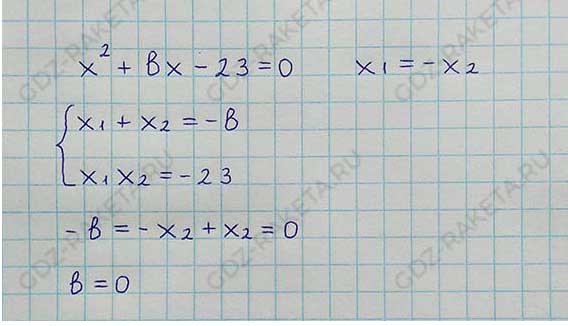 x² + вx − 23 = 0 x₁ = −x₂
x₁ + x₂ = −в
x₁ x₂ = −23
−в = −x₂ + x₂ = 0
в = 0
GDZ-RAKETA.RU